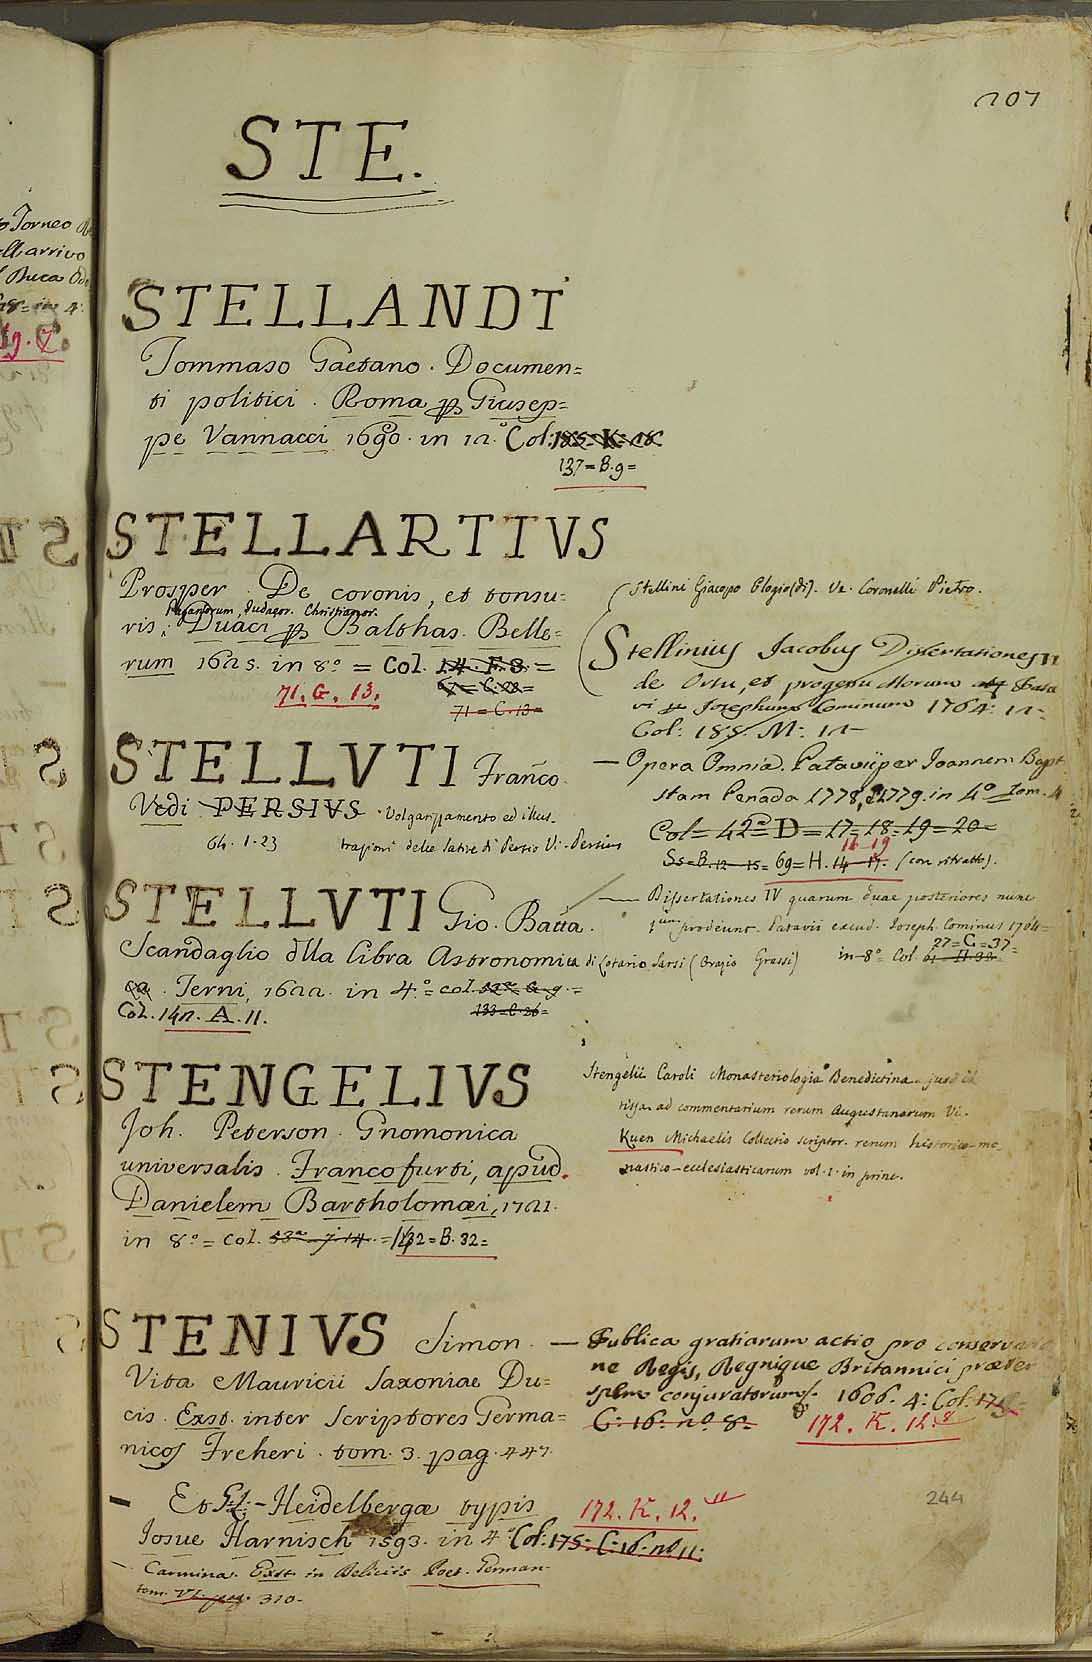 207
STE.
STELLANDI
Tommaso Gaetano. Documen=
ti politici. Roma per Giusep=
pe Vannacci 1690. in 12.° Col:
137=B.9=
STELLARTIVS
Prosper. De coronis, et tonsu=
Paganorum, Judaeor. Christianor.
ris; Duaci per Balthas. Belle=
rum 1625. in 8° = Col. 14. F. 8. =
71. G. 13.
71=C.13=
STELLVTI Franco.
Vedi PERSIVS. Volgarizzamento ed illus-
64.1.23 trazioni delle Satire di Persio Vi. Persius
STELLVTI Gio. Batta.
Scandaglio dlla libra Astronomica di Lotario Sarsi (Orazio Grassi)
Terni, 1622. in 4.° = col.
133=C.26=
Col. 142. A. 11.
STENGELIVS
Joh. Peterson. Gnomonica
universalis. Francofurti, apud
Danielem Bartholomæi, 1721.
in 8.° = col. 53 = 132=B.32=
STENIVS Simon.
Vita Mauricii Saxoniae Du=
cis. Exst. inter Scriptores Germa=
nicos Freheri. tom. 3. pag. 447.
Et — Heidelbergæ typis
Josue Harnisch 1593. in 4° Col: 175: C: 16: n° 11:
172. K. 12. 11
Carmina. Exst. in Deliciis Poet. German
tom. VI. pag. 310.
Stellini Giacopo Elogio (di). Ve. Coronelli Pietro.
Stellinius Jacobus Dissertationes II
de Ortu, et progressu Morum Pata
vi Josephum Cominum 1764: 12
Col: 188. M: 12
— Opera Omnia. Patavii per Joannem Bapt
stam Penada 1778, e 1779. in 4° Tom. 4
Col = 42 = D = 17 = 18 = 19 = 20
16 19
Ss=B.12-15= 69=H. 14-17. (con ritratto).
— Dissertationes IV quarum duae posteriores nunc
1um prodeunt. Patavii excud. Joseph. Cominus 1764=
27=C=37=
in-8° Col.
Stengelii Caroli Monasteriologia Benedictina
ad commentarium rerum Augustanarum Vi.
Kuen Michaelis Collectio scriptor. rerum historico-mo
nastico-ecclesiasticarum vol. 1. in princ.
— Publica gratiarum actio pro conserva
ne Regis, Regnique Britannici præter
spem conjuratorum. 1606. 4: Col:
C: 16: n° 8. 172. K. 12. 8
244